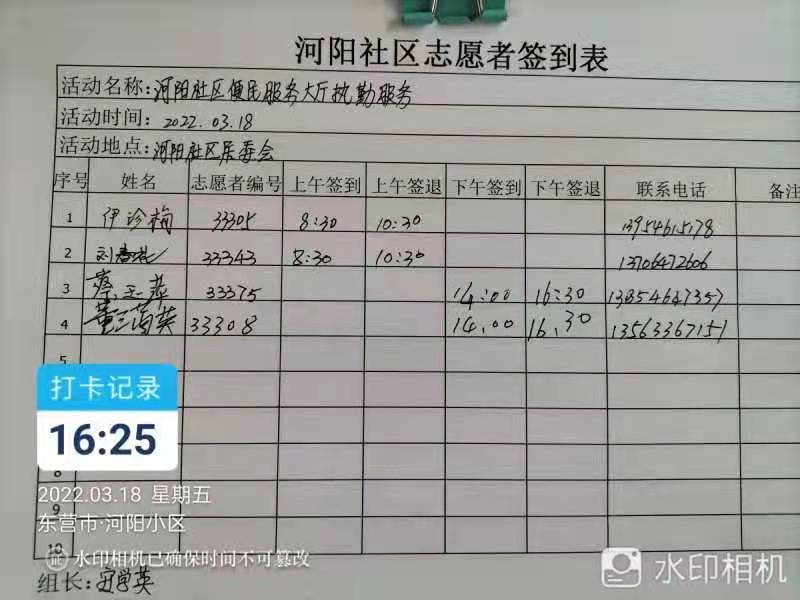 河阳社区志愿者签到表
活动名称: 河阳社区便民服务大厅执勤服务
活动时间: 2022.03.18
活动地点: 河阳社区居委会
序号 姓名 志愿者编号 上午签到 上午签退 下午签到 下午签退 联系电话 备注
1 伊珍梅 33305 8:30 10:30 13954615178
2 刘春花 33343 8:30 10:30 13706472606
3 蔡 33375 14:00 16:30 13854647357
4 董 英 33308 14.00 16.30 13563367151
5
打卡记录
16:25
8
2022.03.18 星期五
9
东营市·河阳小区
10
证 水印相机已确保时间不可篡改
水印相机
组长: 学英